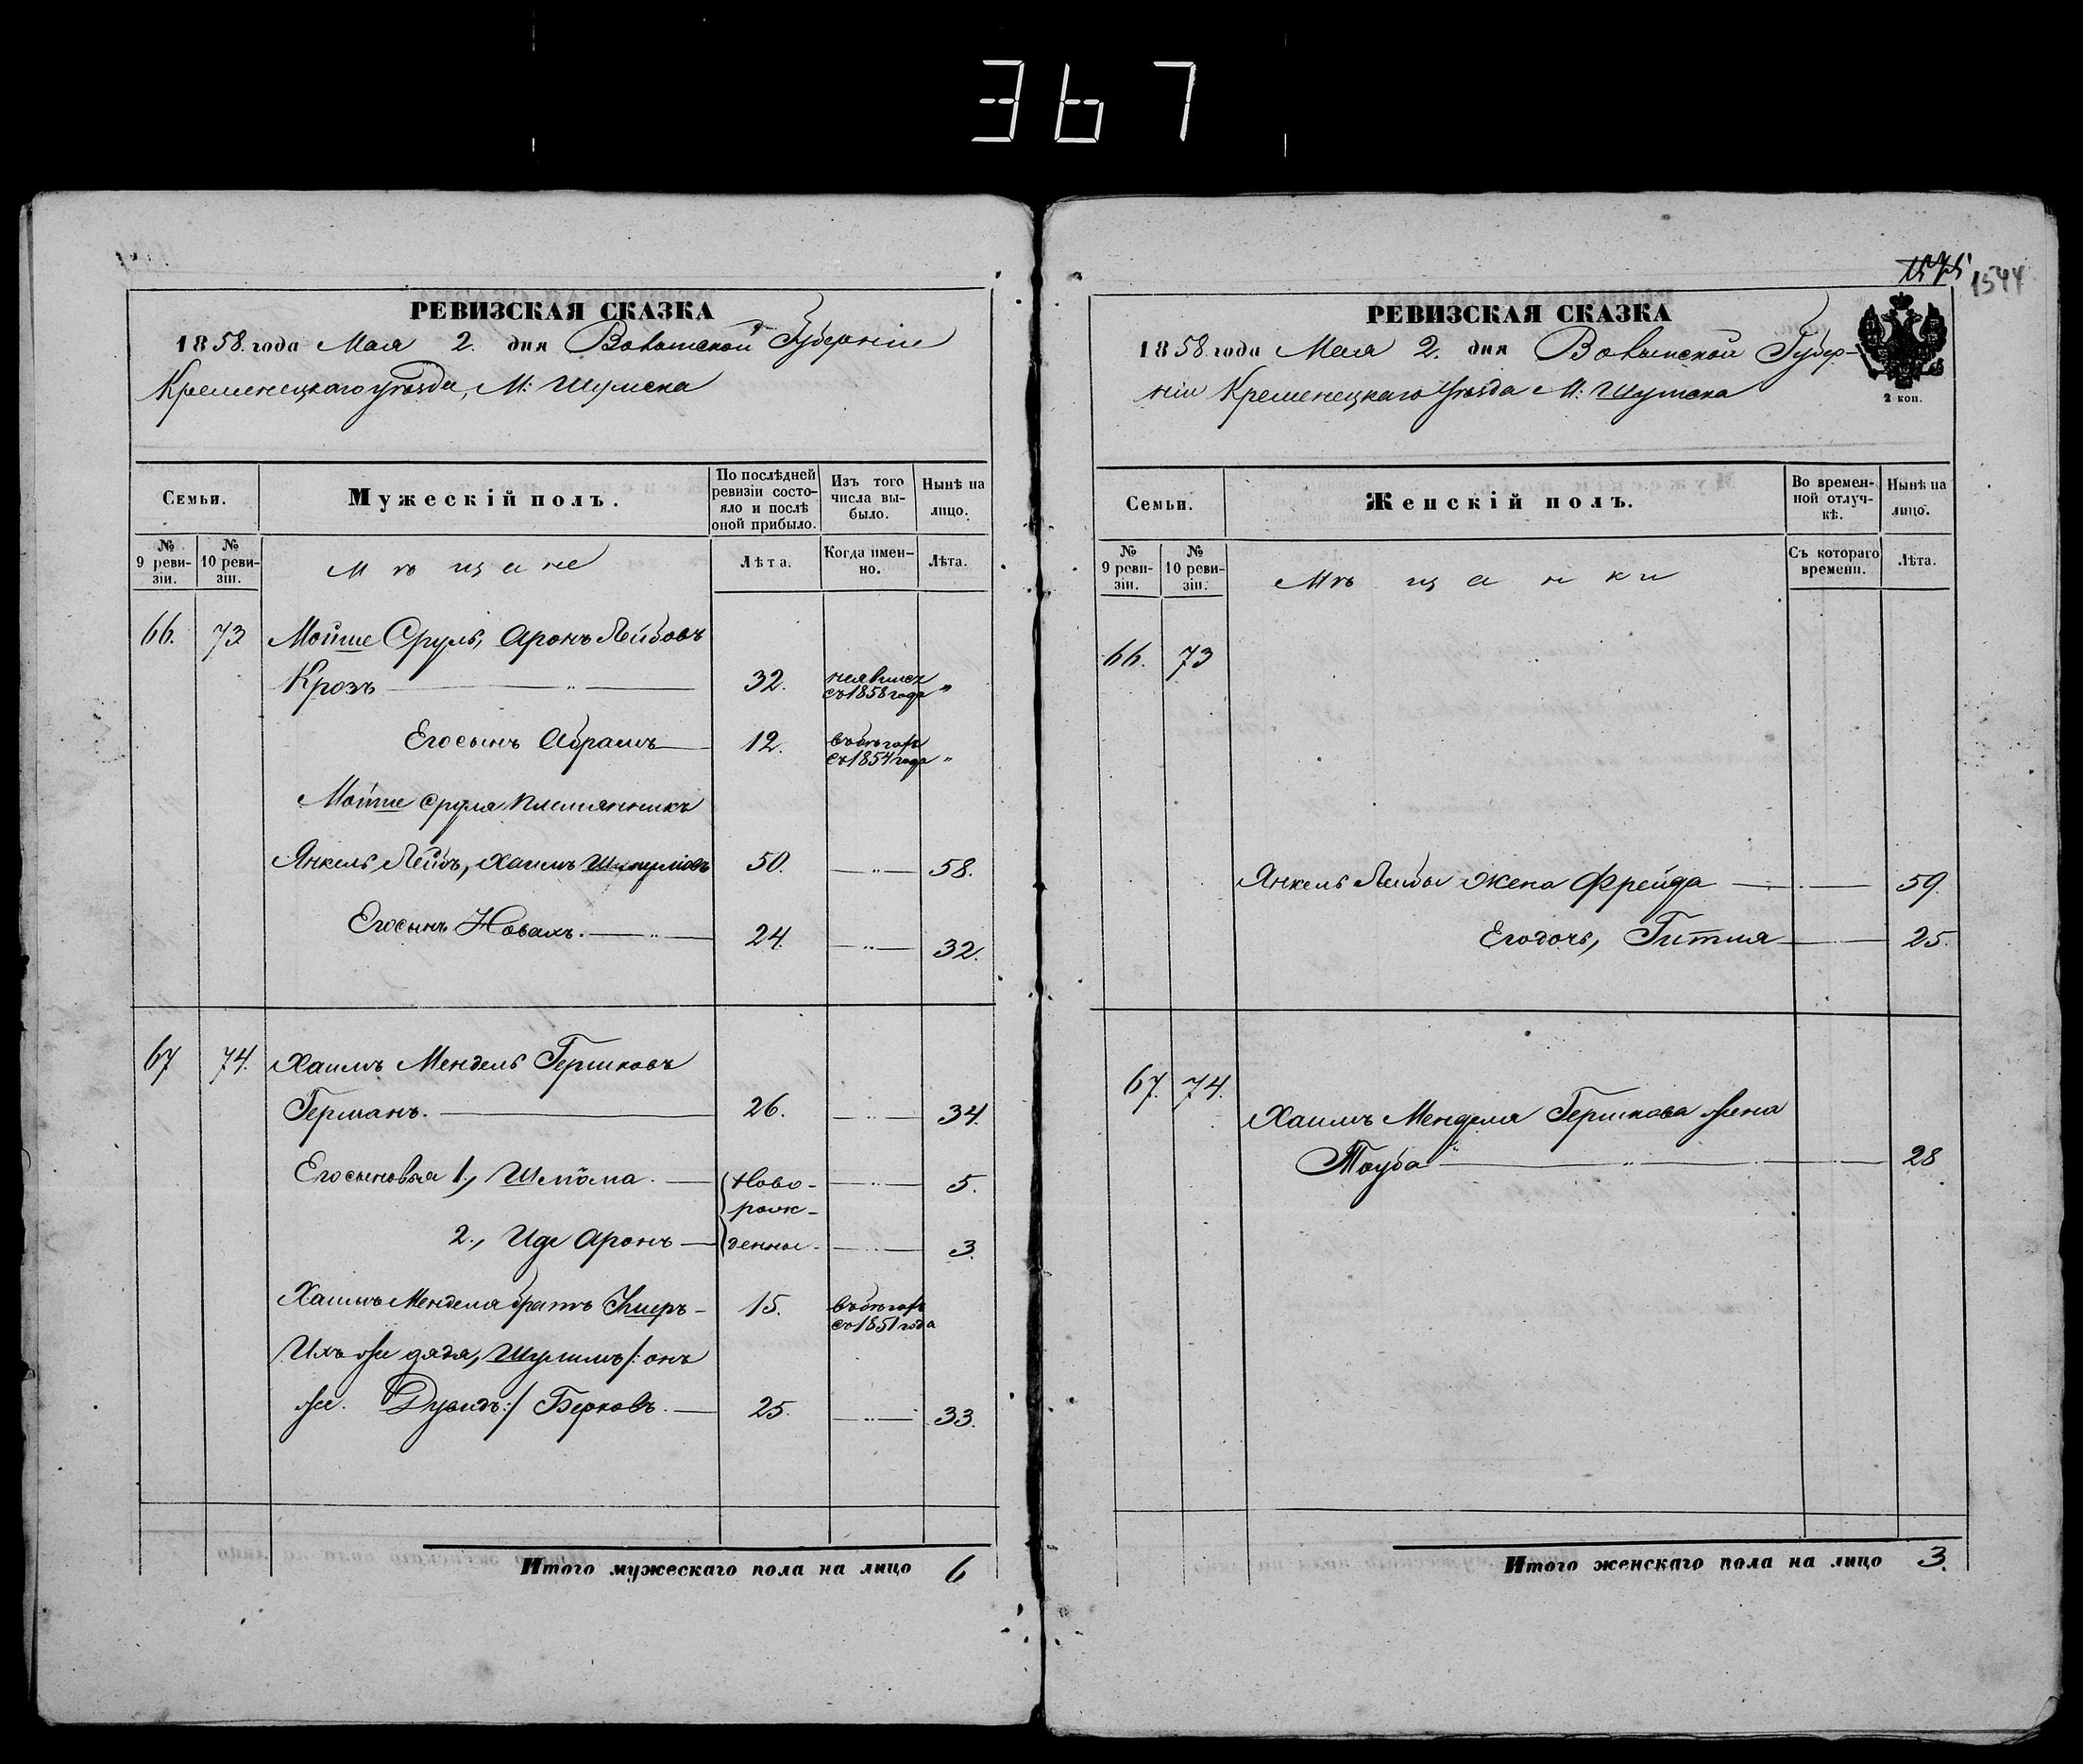 367
РЕВИЗСКАЯ СКАЗКА
1858. года Мая 2. дня Волынской Губерніи
Кременецкаго уѣзда, М: Шумска
Семьи.
Мужескій полъ.
По послѣдней ревизіи состояло и послѣ оной прибыло.
Изъ того числа выбыло.
Нынѣ на лицо.
№ 9 ревизіи.
№ 10 ревизіи.
Мѣщане
Лѣта.
Когда именно.
Лѣта.
66. 73 Мойше Сруль, Аронъ Лейбовъ
Крозъ 32. неявился съ 1858 года "
Егосынъ Абрамъ 12. въ бѣгахъ съ 1854 года "
Мойше Сруля племянникъ
Янкель Лейбъ, Хаимъ 50. 58.
Егосынъ Новахъ. 24. 32.
67 74. Хаимъ Мендель Гершковъ
Германъ. 26. 34.
Егосыновья 1., Шлиома 5.
Новорожденные
2., Иде Аронъ 3.
Хаимъ Менделя братъ 15. въ бѣгахъ съ 1851 года
Ихъ же дядя, Шулимъ /: онъ
же. Дувидъ :/ Берковъ. 25. 33.
Итого мужескаго пола на лицо 6
1575 1544
РЕВИЗСКАЯ СКАЗКА
1858. года Мая 2. дня Волынской Губер-
ніи Кременецкаго Уѣзда М: Шумска
2 коп.
Семьи.
Женскій полъ.
Во временной отлучкѣ.
Нынѣ на лицо.
№ 9 ревизіи.
№ 10 ревизіи.
Мѣщанки
Съ котораго времени.
Лѣта.
66. 73
Янкель Лейбы жена Фрейда 59.
Егодочь, Гитля 25.
67. 74.
Хаимъ Менделя Гершкова жена
Тоуба 28
Итого женскаго пола на лицо 3.